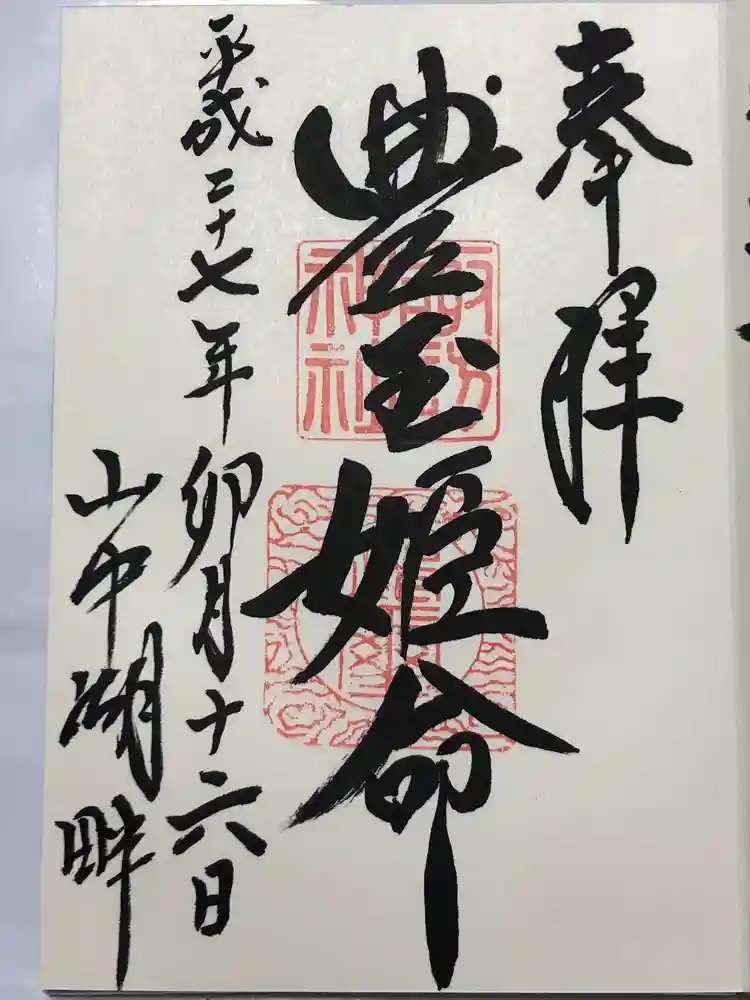 奉拝
豊玉姫命
諏訪神社
平成二十七年卯月十六日
山中湖畔